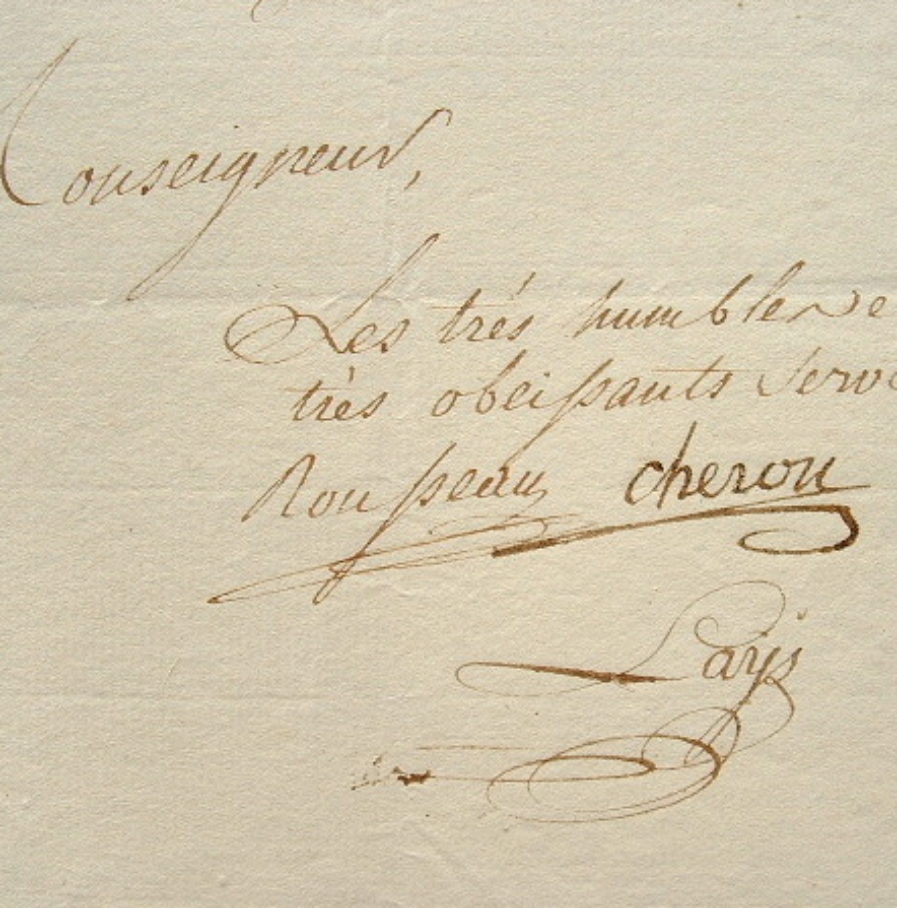 Monseigneur,
Les trés humbles e
très obeissants Serv
Rousseau cheron
Laÿs